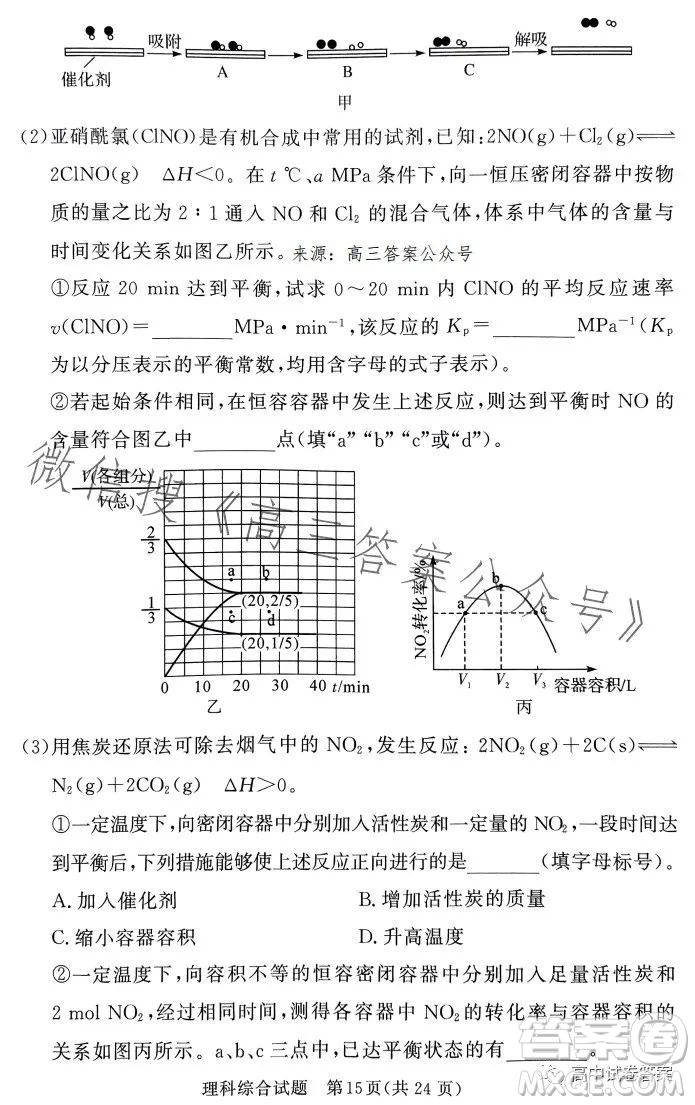 吸附
解吸
催化剂
A
B
C
甲
(2)亚硝酰氯(ClNO)是有机合成中常用的试剂,已知:2NO(g)+Cl₂(g)⇌
2ClNO(g) ΔH<0。在 t ℃、a MPa 条件下,向一恒压密闭容器中按物
质的量之比为 2∶1 通入 NO 和 Cl₂ 的混合气体,体系中气体的含量与
时间变化关系如图乙所示。来源:高三答案公众号
①反应 20 min 达到平衡,试求 0~20 min 内 ClNO 的平均反应速率
v(ClNO)=______MPa·min⁻¹,该反应的 Kₚ=______MPa⁻¹(Kₚ
为以分压表示的平衡常数,均用含字母的式子表示)。
②若起始条件相同,在恒容容器中发生上述反应,则达到平衡时 NO 的
含量符合图乙中______点(填“a”“b”“c”或“d”)。
V(各组分)
V(总)
2/3
1/3
a
b
(20,2/5)
c
d
(20,1/5)
0 10 20 30 40 t/min
乙
NO₂转化率/%
a
b
c
V₁ V₂ V₃ 容器容积/L
丙
微信搜《高三答案公众号》
(3)用焦炭还原法可除去烟气中的 NO₂,发生反应:2NO₂(g)+2C(s)⇌
N₂(g)+2CO₂(g) ΔH>0。
①一定温度下,向密闭容器中分别加入活性炭和一定量的 NO₂,一段时间达
到平衡后,下列措施能够使上述反应正向进行的是______(填字母标号)。
A. 加入催化剂 B. 增加活性炭的质量
C. 缩小容器容积 D. 升高温度
②一定温度下,向容积不等的恒容密闭容器中分别加入足量活性炭和
2 mol NO₂,经过相同时间,测得各容器中 NO₂ 的转化率与容器容积的
关系如图丙所示。a、b、c 三点中,已达平衡状态的有______。
理科综合试题 第15页(共 24 页)
答案卷
高中试卷答案